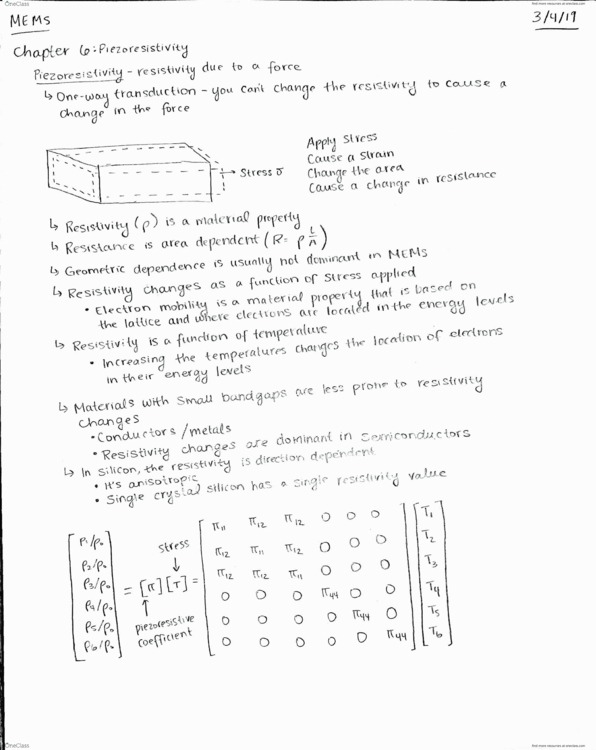 OneClass
find more resources at oneclass.com
MEMS
3/4/19
Chapter 6: Piezoresistivity
Piezoresistivity - resistivity due to a force
↳ One-way transduction - you can't change the resistivity to cause a
change in the force
→ Stress σ
Apply stress
Cause a strain
Change the area
Cause a change in resistance
↳ Resistivity (ρ) is a material property
↳ Resistance is area dependent (R = ρ L/A)
↳ Geometric dependence is usually not dominant in MEMS
↳ Resistivity changes as a function of stress applied
• Electron mobility is a material property that is based on
the lattice and where electrons are located in the energy levels
↳ Resistivity is a function of temperature
• Increasing the temperatures changes the location of electrons
in their energy levels
↳ Materials with small bandgaps are less prone to resistivity
changes
• Conductors/metals
• Resistivity changes are dominant in semiconductors
↳ In silicon, the resistivity is direction dependent
• It's anisotropic
• Single crystal silicon has a single resistivity value
ρ1/ρ0
ρ2/ρ0
ρ3/ρ0
ρ4/ρ0
ρ5/ρ0
ρ6/ρ0
stress
↓
= [π][T] =
↑
piezoresistive
coefficient
π11 π12 π12 0 0 0
π12 π11 π12 0 0 0
π12 π12 π11 0 0 0
0 0 0 π44 0 0
0 0 0 0 π44 0
0 0 0 0 0 π44
T1
T2
T3
T4
T5
T6
OneClass
find more resources at oneclass.com